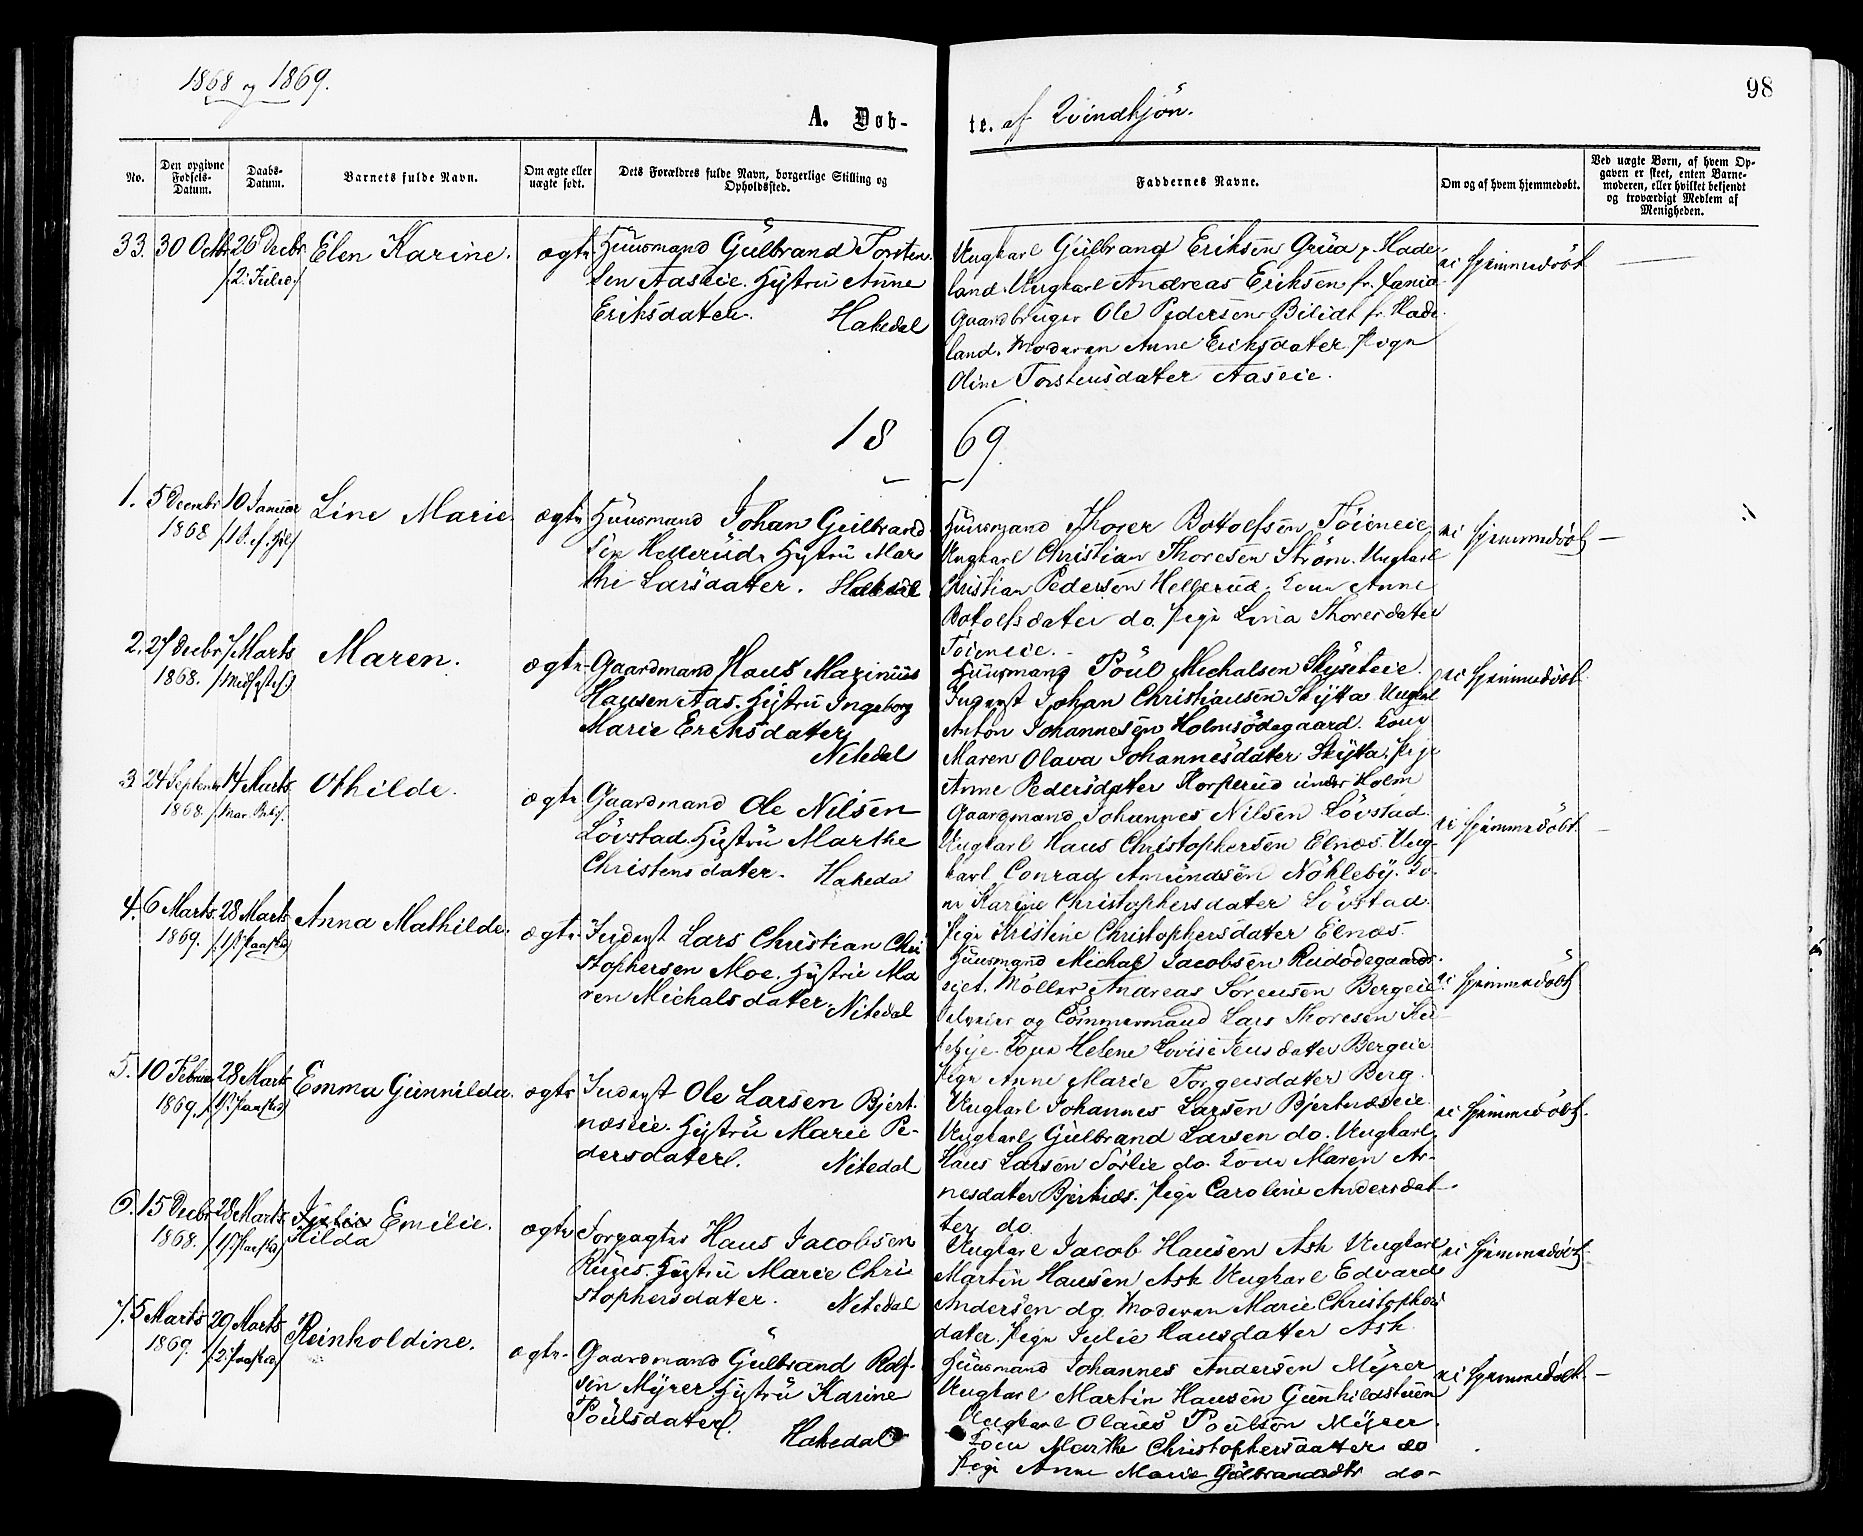 1868 og 1869.
98
A. Døb-
te. af Qvindkjön.
No.
Den opgivne Fødsels-Datum.
Daabs-Datum.
Barnets fulde Navn.
Om ægte eller uægte født.
Dets Forældres fulde Navn, borgerlige Stilling og Opholdssted.
Faddernes Navne.
Om og af hvem hjemmedøbt.
Ved uægte Børn, af hvem Opgaven er skeet, enten Barnemoderen, eller hvilket bekjendt og troværdigt Medlem af Menigheden.
33. 30 Octbr. 26 Decbr.
/2. Juled./
Elen Karine.
ægte
Huusmand Gulbrand Torsten-
sen Aaseie. Hustru Anne
Eriksdatter.
Hakedal
Ungkarl Gulbrand Eriksen Grua p. Hade-
land. Ungkarl Andreas Eriksen fr.
Gaardbruger Ole Pedersen Bilidt fr. Hade-
land. Moderen Anne Eriksdatter. Pige
Oline Torstensdatter Aaseie.
ei hjemmedøbt
1869.
1. 5 Decembr 10 Januar
1868 /1 S. ef. /
Line Marie.
ægte
Huusmand Johan Gulbrand-
sen Hellerud. Hustru Mar-
thi Larsdatter. Hakedal
Huusmand Thorer Botolfsen Töieneie
Ungkarl Christian Thoresen Ström. Ungkarl
Christian Pedersen Hellerud. Kone Anne
Botolfsdatter do. Pige Lina Thoresdatter
Töieneie.
ei hjemmedøbt
2. 27 Decbr 7 Marts
1868. /Midfaste/
Maren.
ægte
Gaardmand Hans Marinius
Hansen Aas. Hustru Ingeborg
Marie Eriksdatter
Nitedal
Huusmand Poul Michalsen Skyseteie.
Inderst Johan Christiansen Skytta. Ungkarl
Anton Johannesen Holmsödegaard. Kone
Maren Olava Johannesdatter Skytta. Pige
Anne Pedersdatter Korslerud under Holm
ei hjemmedøbt
3 24 Septembr 14 Marts
1868. /Mar. Beb/.
Othilde.
ægte
Gaardmand Ole Nilsen
Lövstad. Hustru Marthe
Christensdatter. Hakedal
Gaardmand Johannes Nilsen Lövstad.
Ungkarl Hans Christophersen Elnæs. Ung-
karl Conrad Amundsen Nökleby. Ko-
ne Karine Christophersdatter Lövstad.
Pige Kristine Christophersdatter Elnæs.
ei hjemmedøbt
4. 6 Marts. 28 Marts
1869. /1 Paaskd/
Anna Mathilde.
ægte
Inderst Lars Christian Chri-
stophersen Moe. Hustru Ma-
ren Michalsdatter. Nitedal
Huusmand Michal Jacobsen Rudödegaards-
eiet. Möller Andreas Sörensen Bergeie.
Selveier og Tömmermand Lars Thoresen
Kone Helene Lovise Jensdatter Bergeie.
Pige Anne Marie Torgersdatter Berg.
ei hjemmedøbt
5. 10 Februar 28 Marts
1869. /1 Paaskd/
Emma Gunnilda.
ægte
Inderst Ole Larsen Bjert-
næseie. Hustru Marie Pe-
dersdatter.
Nitedal
Ungkarl Johannes Larsen Bjertnæseie.
Ungkarl Gulbrand Larsen do. Ungkarl
Hans Larsen Sörlie do. Kone Maren Ar-
nesdatter Bjertnæs. Pige Caroline Andersdat-
ter do.
ei hjemmedøbt.
6. 15 Decbr 28 Marts.
1868. /1 Paaskd/
Julie Emilie.
Hilda
ægte
Forpagter Hans Jacobsen
Huustru Marie Chri-
stophersdatter. Nitedal
Ungkarl Jacob Hansen Ask Ungkarl
Martin Hansen Ask Ungkarl Edvard
Andersen do. Moderen Marie Christophers-
datter. Pige Julie Hansdatter Ask
ei hjemmedøbt.
7. 5 Marts 29 Marts
1869. /2 Paaskd/
Reinholdine.
ægte.
Gaardmand Gulbrand Rolf-
sen Myrer. Hustru Karine
Poulsdatter.
Hakedal
Huusmand Johannes Andersen Myrer
Ungkarl Martin Hansen Gunhildstuen
Ungkarl Olaus Poulsen Myrer.
Kone Marthe Christophersdatter do
Pige Anne Marie Gulbrandsdtr do-
ei hjemmedøbt.